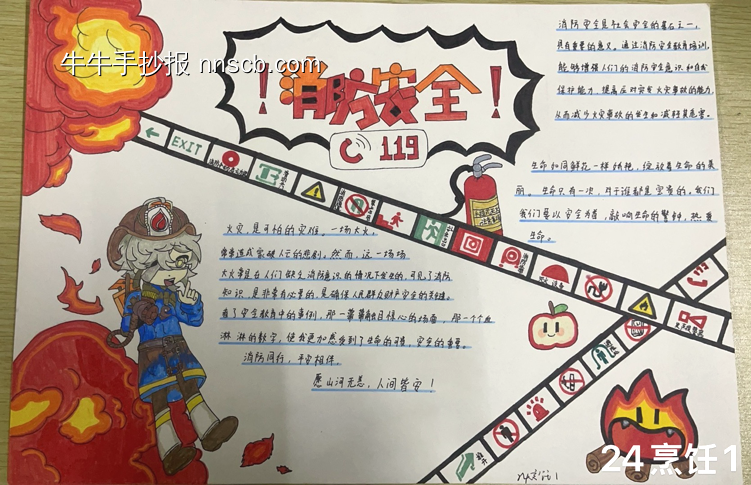 牛牛手抄报 nnscb.com
！消防安全！
119
消防安全是社会安全的基石之一，
具有重要的意义。通过消防安全教育培训，
能够增强人们的消防安全意识和自我
保护能力，提高应对突发火灾事故的能力，
从而减少火灾事故的发生和减轻其危害。
生命如同鲜花一样娇艳，绽放着生命的美
丽。生命只有一次，对于谁都是宝贵的。我们
我们要以安全为首，敲响生命的警钟，热爱
生命。
EXIT
火灾，是可怕的灾难。一场大火，
会造成家破人亡的悲剧，然而，这一场场
大火常是在人们缺乏消防意识的情况下发生的，可见了消防
知识，是非常有必要的，是确保人民群众财产安全的关键。
看了安全教育中的案例，那一幕幕触目惊心的场面，那一个个血
淋淋的数字，使我更加感受到了生命的可贵，安全的重要。
消防同行，平安相伴。
愿山河无恙，人间皆安！
24烹饪1